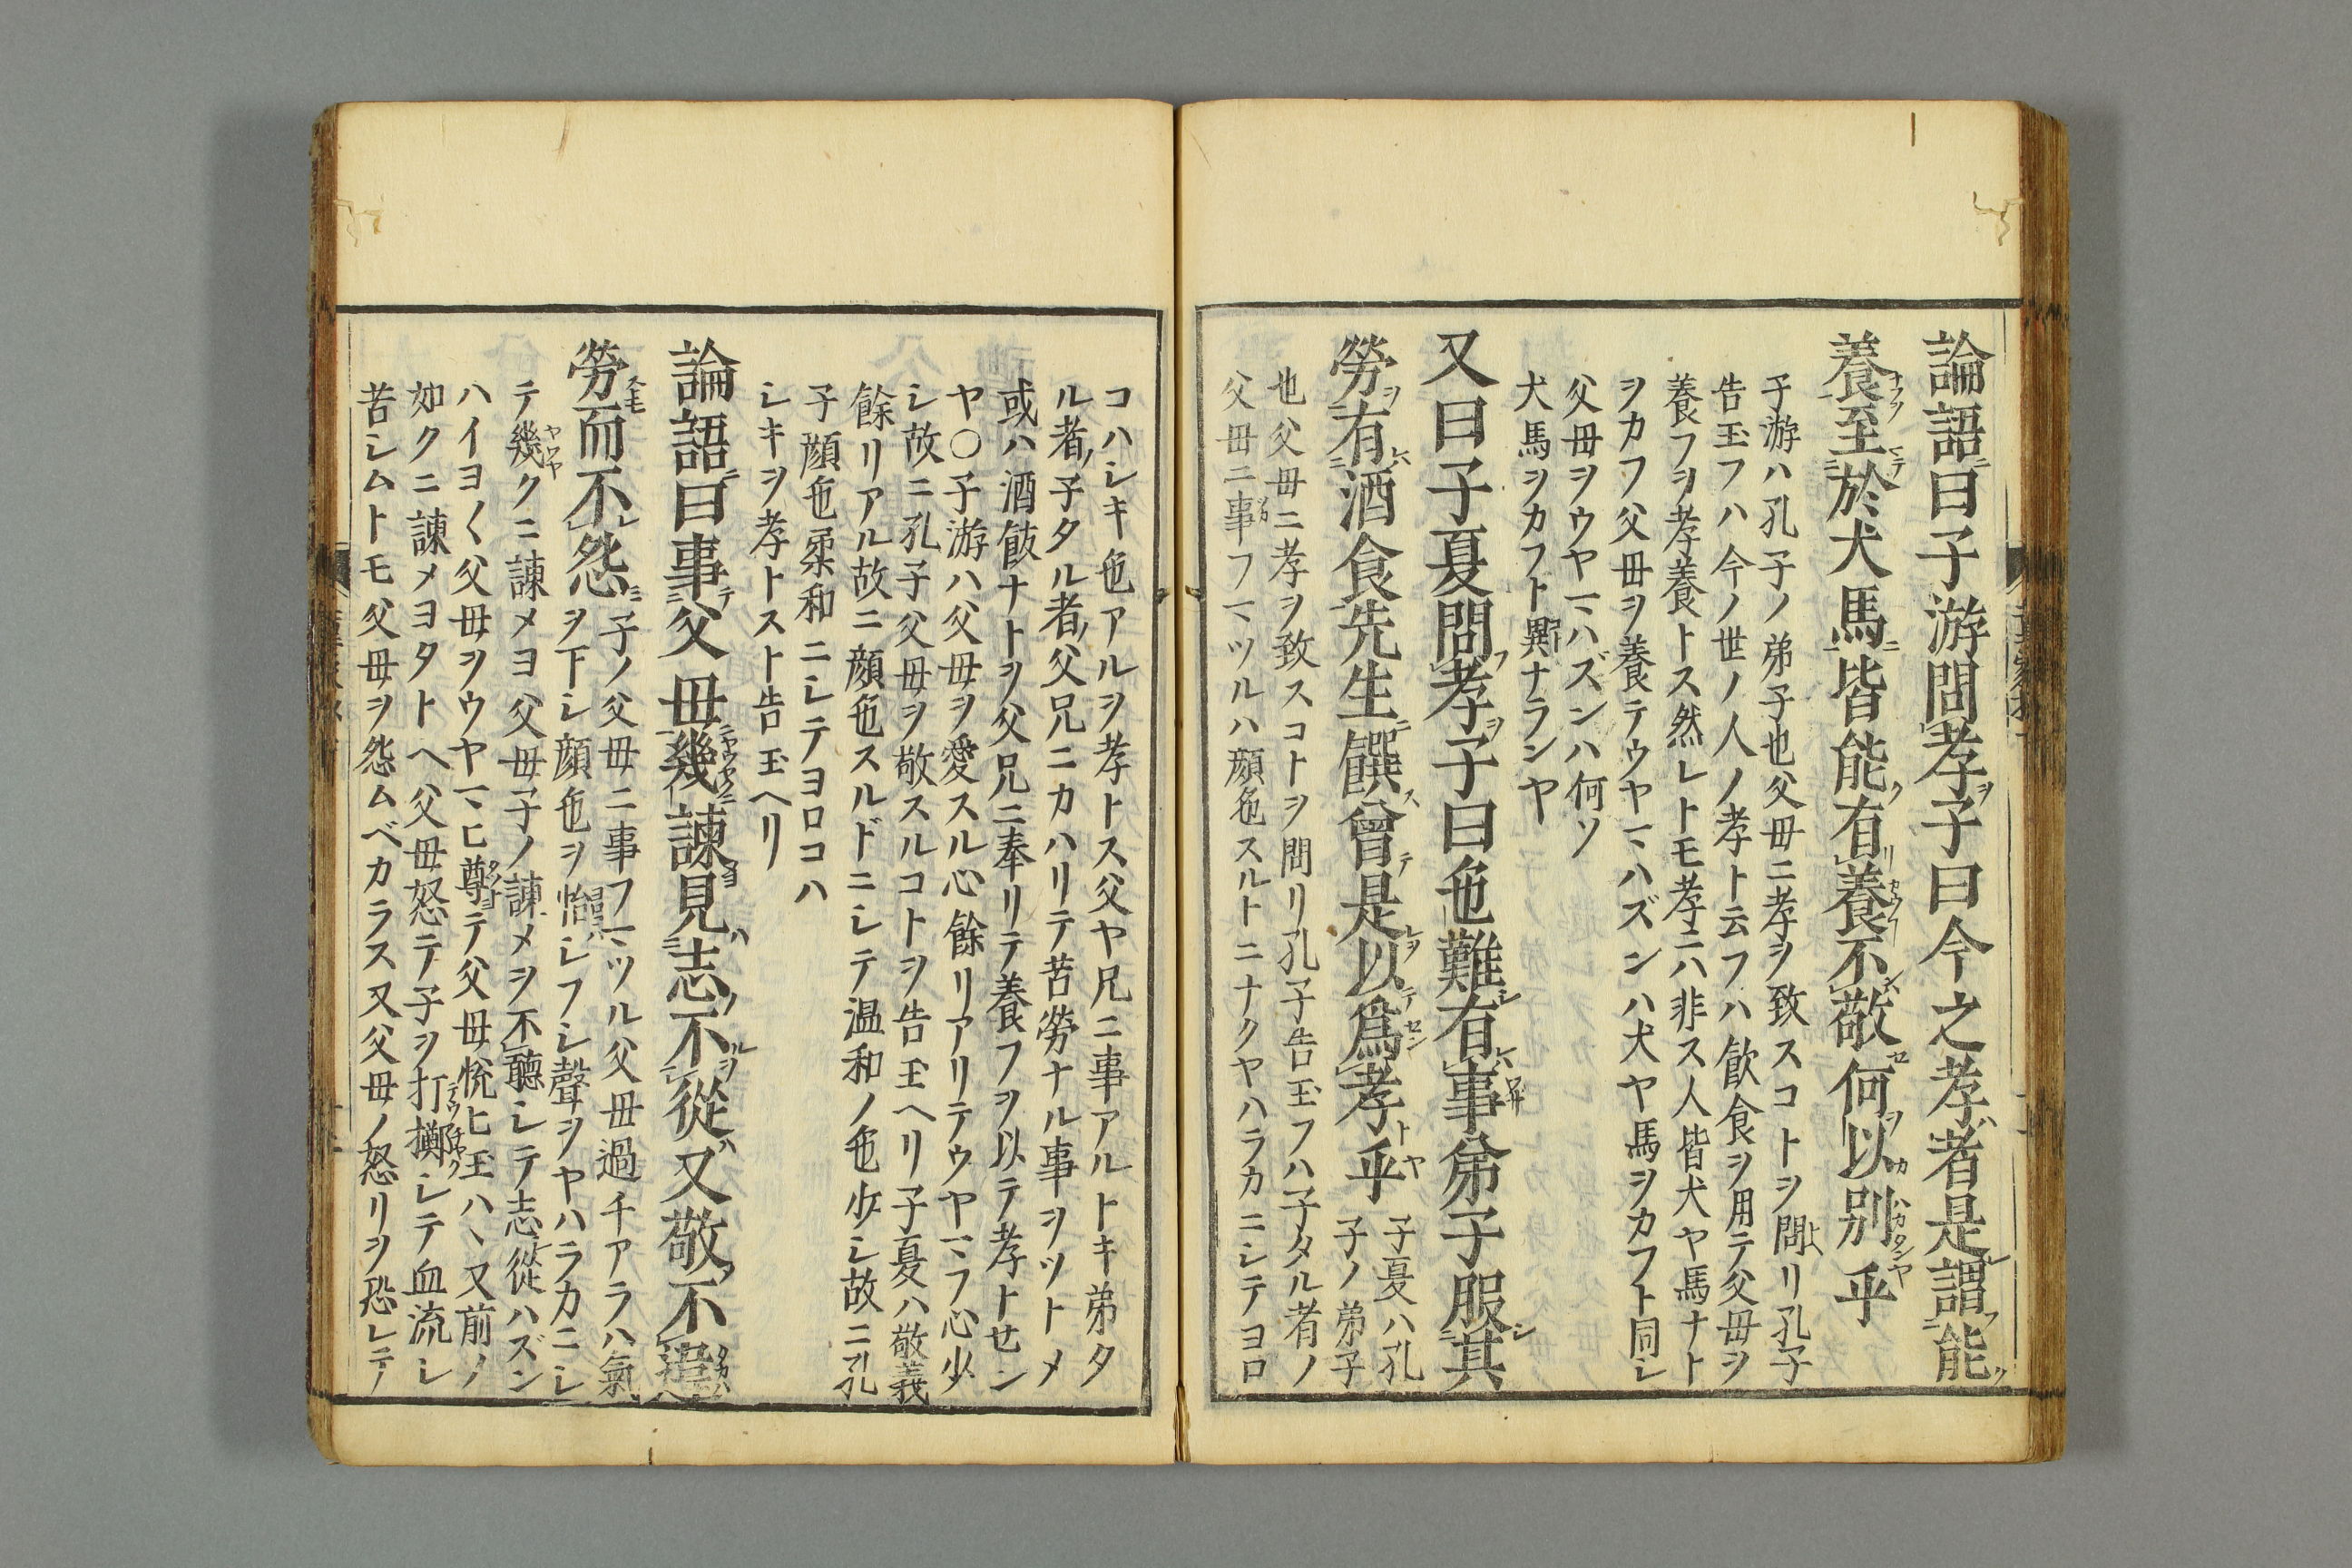 論語曰子游問孝子曰今之孝者是謂能
養至於犬馬皆能有養不敬何以別乎
子游ハ孔子ノ弟子也父毋ニ孝ヲ致スコトヲ問リ孔子
告玉フハ今ノ世ノ人ノ孝ト云フハ飲食ヲ用テ父毋ヲ
養フヲ孝養トス然レトモ孝ニハ非ス人皆犬ヤ馬ナト
ヲカフ父毋ヲ養テウヤマハズンハ犬ヤ馬ヲカフト同シ
父毋ヲウヤマハズンハ何ソ
犬馬ヲカフト異ナランヤ
又曰子夏問孝子曰色難有事弟子服其
勞有酒食先生饌曾是以爲孝乎
子夏ハ孔
子ノ弟子
也父毋ニ孝ヲ致スコトヲ問リ孔子告玉フハ子タル者ノ
父毋ニ事フマツルハ顔色スルトニナクヤハラカニシテヨロ
コハシキ色アルヲ孝トス父ヤ兄ニ事アルトキ弟タ
ル者子タル者父兄ニカハリテ苦勞ナル事ヲツトメ
或ハ酒飯ナトヲ父兄ニ奉リテ養フヲ以テ孝トセン
ヤ○子游ハ父母ヲ愛スル心餘リアリテウヤマフ心少
シ故ニ孔子父母ヲ敬スルコトヲ告玉ヘリ子夏ハ敬義
餘リアル故ニ顔色スルドニシテ温和ノ色少シ故ニ孔
子顔色柔和ニシテヨロコハ
シキヲ孝トスト告玉ヘリ
論語曰事父毋幾諫見志不從又敬不違
勞而不怨
子ノ父母ニ事フマツル父毋過チアラハ氣
ヲ下シ顔色ヲ怡シフシ聲ヲヤハラカニシ
テ幾クニ諫メヨ父毋子ノ諫メヲ不聽シテ志從ハズン
ハイヨ〱父母ヲウヤマヒ尊テ父母悅ヒ玉ハヽ又前ノ
如クニ諫メヨタトヘ父毋怒テ子ヲ打擲シテ血流レ
苦シムトモ父母ヲ怨ムベカラス又父毋ノ怒リヲ恐レテ